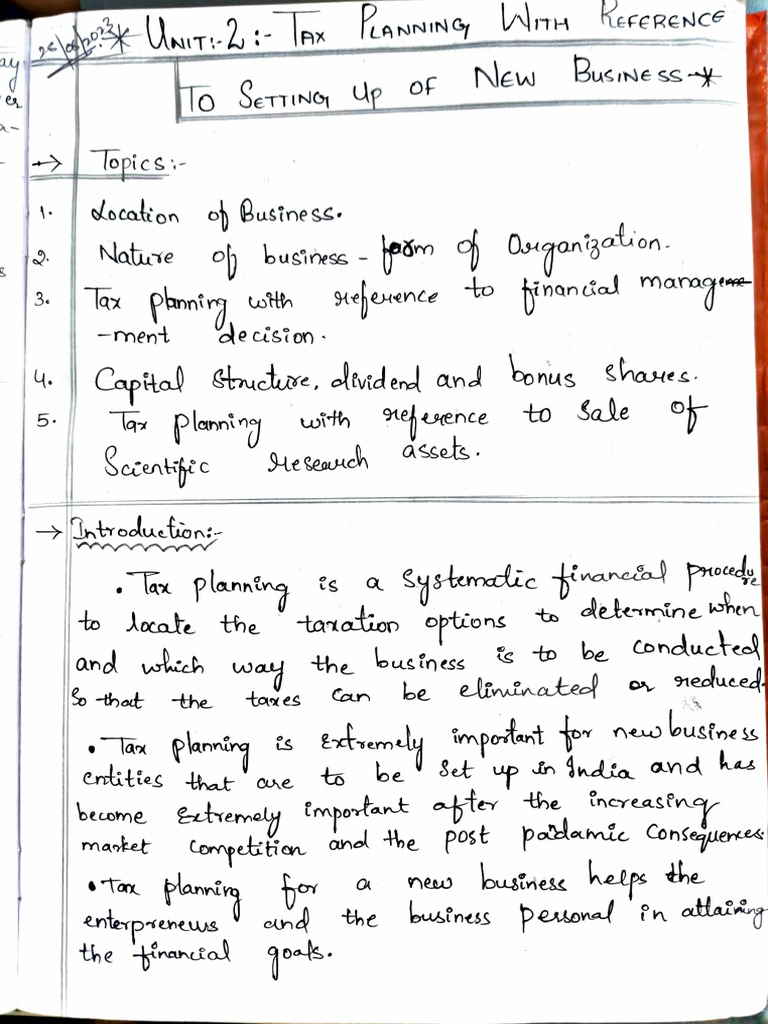 26/08/2023 * UNIT:-2:- TAX PLANNING WITH REFERENCE
TO SETTING UP OF NEW BUSINESS *
→ Topics:-
1. Location of Business.
2. Nature of business - form of Organization.
3. Tax planning with reference to financial manage
-ment decision.
4. Capital Structure, dividend and bonus shares.
5. Tax planning with reference to Sale of
Scientific research assets.
→ Introduction:-
• Tax planning is a systematic financial procedure
to locate the taxation options to determine when
and which way the business is to be conducted
So that the taxes can be eliminated or reduced.
• Tax planning is extremely important for new business
entities that are to be set up in India and has
become extremely important after the increasing
market competition and the post padamic consequences.
• Tax planning for a new business helps the
enterpreneus and the business personal in attaining
the financial goals.